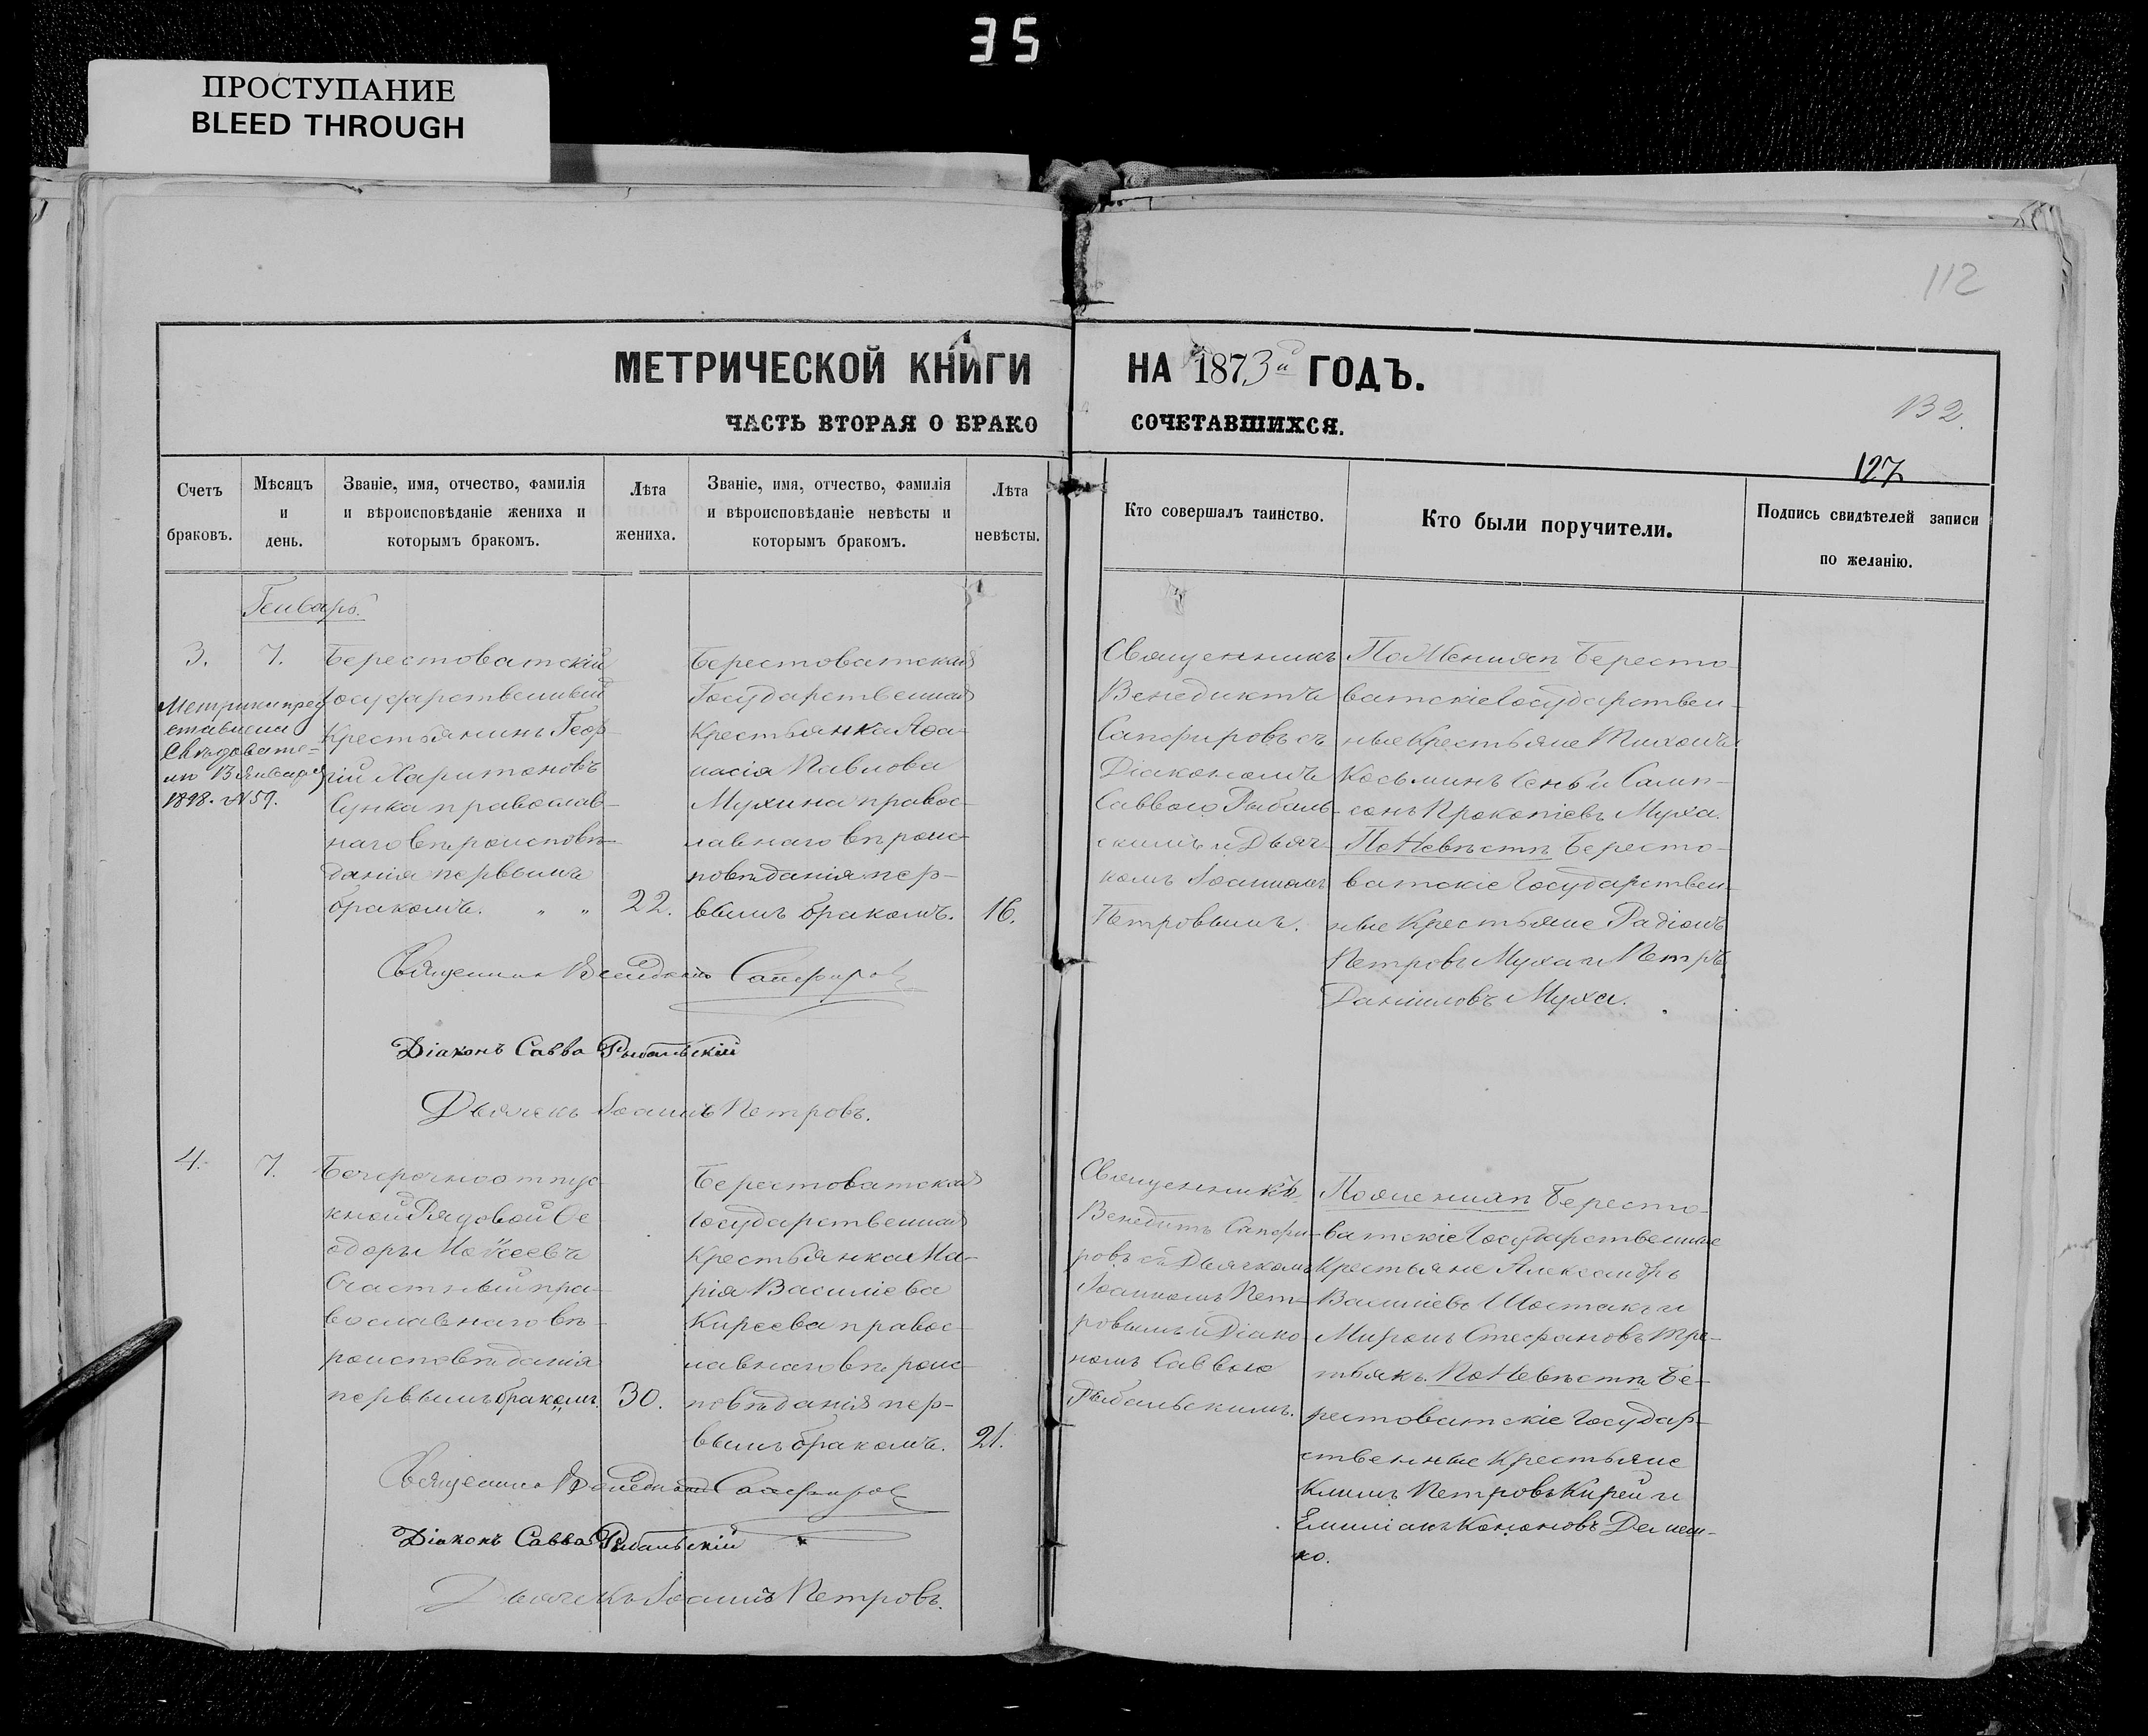 35
ПРОСТУПАНИЕ
BLEED THROUGH
112
МЕТРИЧЕСКОЙ КНИГИ НА 1873й ГОДЪ.
ЧАСТЬ ВТОРАЯ О БРАКОСОЧЕТАВШИХСЯ.
132.
127
Счетъ браковъ.
Мѣсяцъ и день.
Званіе, имя, отчество, фамилія и вѣроисповѣданіе жениха и которымъ бракомъ.
Лѣта жениха.
Званіе, имя, отчество, фамилія и вѣроисповѣданіе невѣсты и которымъ бракомъ.
Лѣта невѣсты.
Кто совершалъ таинство.
Кто были поручители.
Подпись свидѣтелей записи по желанію.
Генварь
3.
7.
1898. №59.
Берестоватскій
Государственный
Крестьянинъ Геор-
гій Харитоновъ
православ-
наго вѣроисповѣ-
данія первымъ
бракомъ. " "
22.
Берестоватская
Государственная
Крестьянка Аѳа-
насія Павлова
Мухина правос-
лавнаго вѣроис-
повѣданія пер-
вымъ бракомъ.
16.
Священникъ
Венедиктъ
Сапфировъ съ
Діакономъ
Саввою Рыбаль-
скимъ и Дьяч-
комъ Іоанномъ
Петровымъ.
По Женихѣ Бересто-
ватскіе Государствен-
ные Крестьяне Тихонъ
Косьминъ и Самп-
сонъ Прокопіевъ Муха.
По Невѣстѣ Бересто-
ватскіе Государствен-
ные Крестьяне Радіонъ
Петровъ Муха и Петръ
Даніиловъ Муха.
Священникъ Венедиктъ Сапфировъ
Діаконъ Савва Рыбальскій
Дьячекъ Іоаннъ Петровъ.
4.
7.
Безсрочноотпус-
кной Рядовой Ѳе-
одоръ Моѵсеевъ
Счастный пра-
вославнаго вѣ-
роисповѣданія
первымъ бракомъ.
30.
Берестоватская
Государственная
Крестьянка Ма-
рія Василіева
Киреева правос-
лавнаго вѣроис-
повѣданія пер-
вымъ бракомъ.
21.
Священникъ
Венедиктъ Сапфи-
ровъ съ Дьячкомъ
Іоанномъ Пет-
ровымъ и Діако-
номъ Саввою
Рыбальскимъ.
По женихѣ Бересто-
ватскіе Государственные
Крестьяне Александръ
Василіевъ Шостакъ и
Миронъ Стефановъ Тре-
тьякъ. По Невѣстѣ Бе-
рестоватскіе Государ-
ственные Крестьяне
Климъ Петровъ Кирей и
Емиліанъ Кононовъ
ко.
Священникъ Венедиктъ Сапфировъ
Діаконъ Савва Рыбальскій
Дьячекъ Іоаннъ Петровъ.